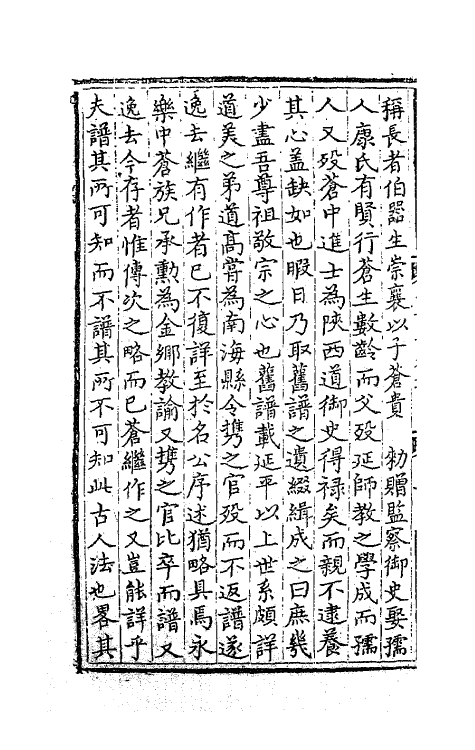 稱長者伯器生崇襄以子蒼貴　勑贈監察御史娶孺
人康氏有賢行蒼生數齡而父歿延師教之學成而孺
人又歿蒼中進士為陝西道御史得禄矣而親不逮養
其心盖缺如也暇日乃取舊譜之遺綴緝成之曰庶幾
少盡吾尊祖敬宗之心也舊譜載延平以上世系頗詳
道美之弟道高甞為南海縣令携之官歿而不返譜遂
逸去繼有作者已不復詳至於名公序述猶略具焉永
樂中蒼族兄承勲為金鄉教諭又携之官比卒而譜又
逸去今存者惟傳次之略而已蒼繼作之又豈能詳乎
夫譜其所可知而不譜其所不可知此古人法也畧其